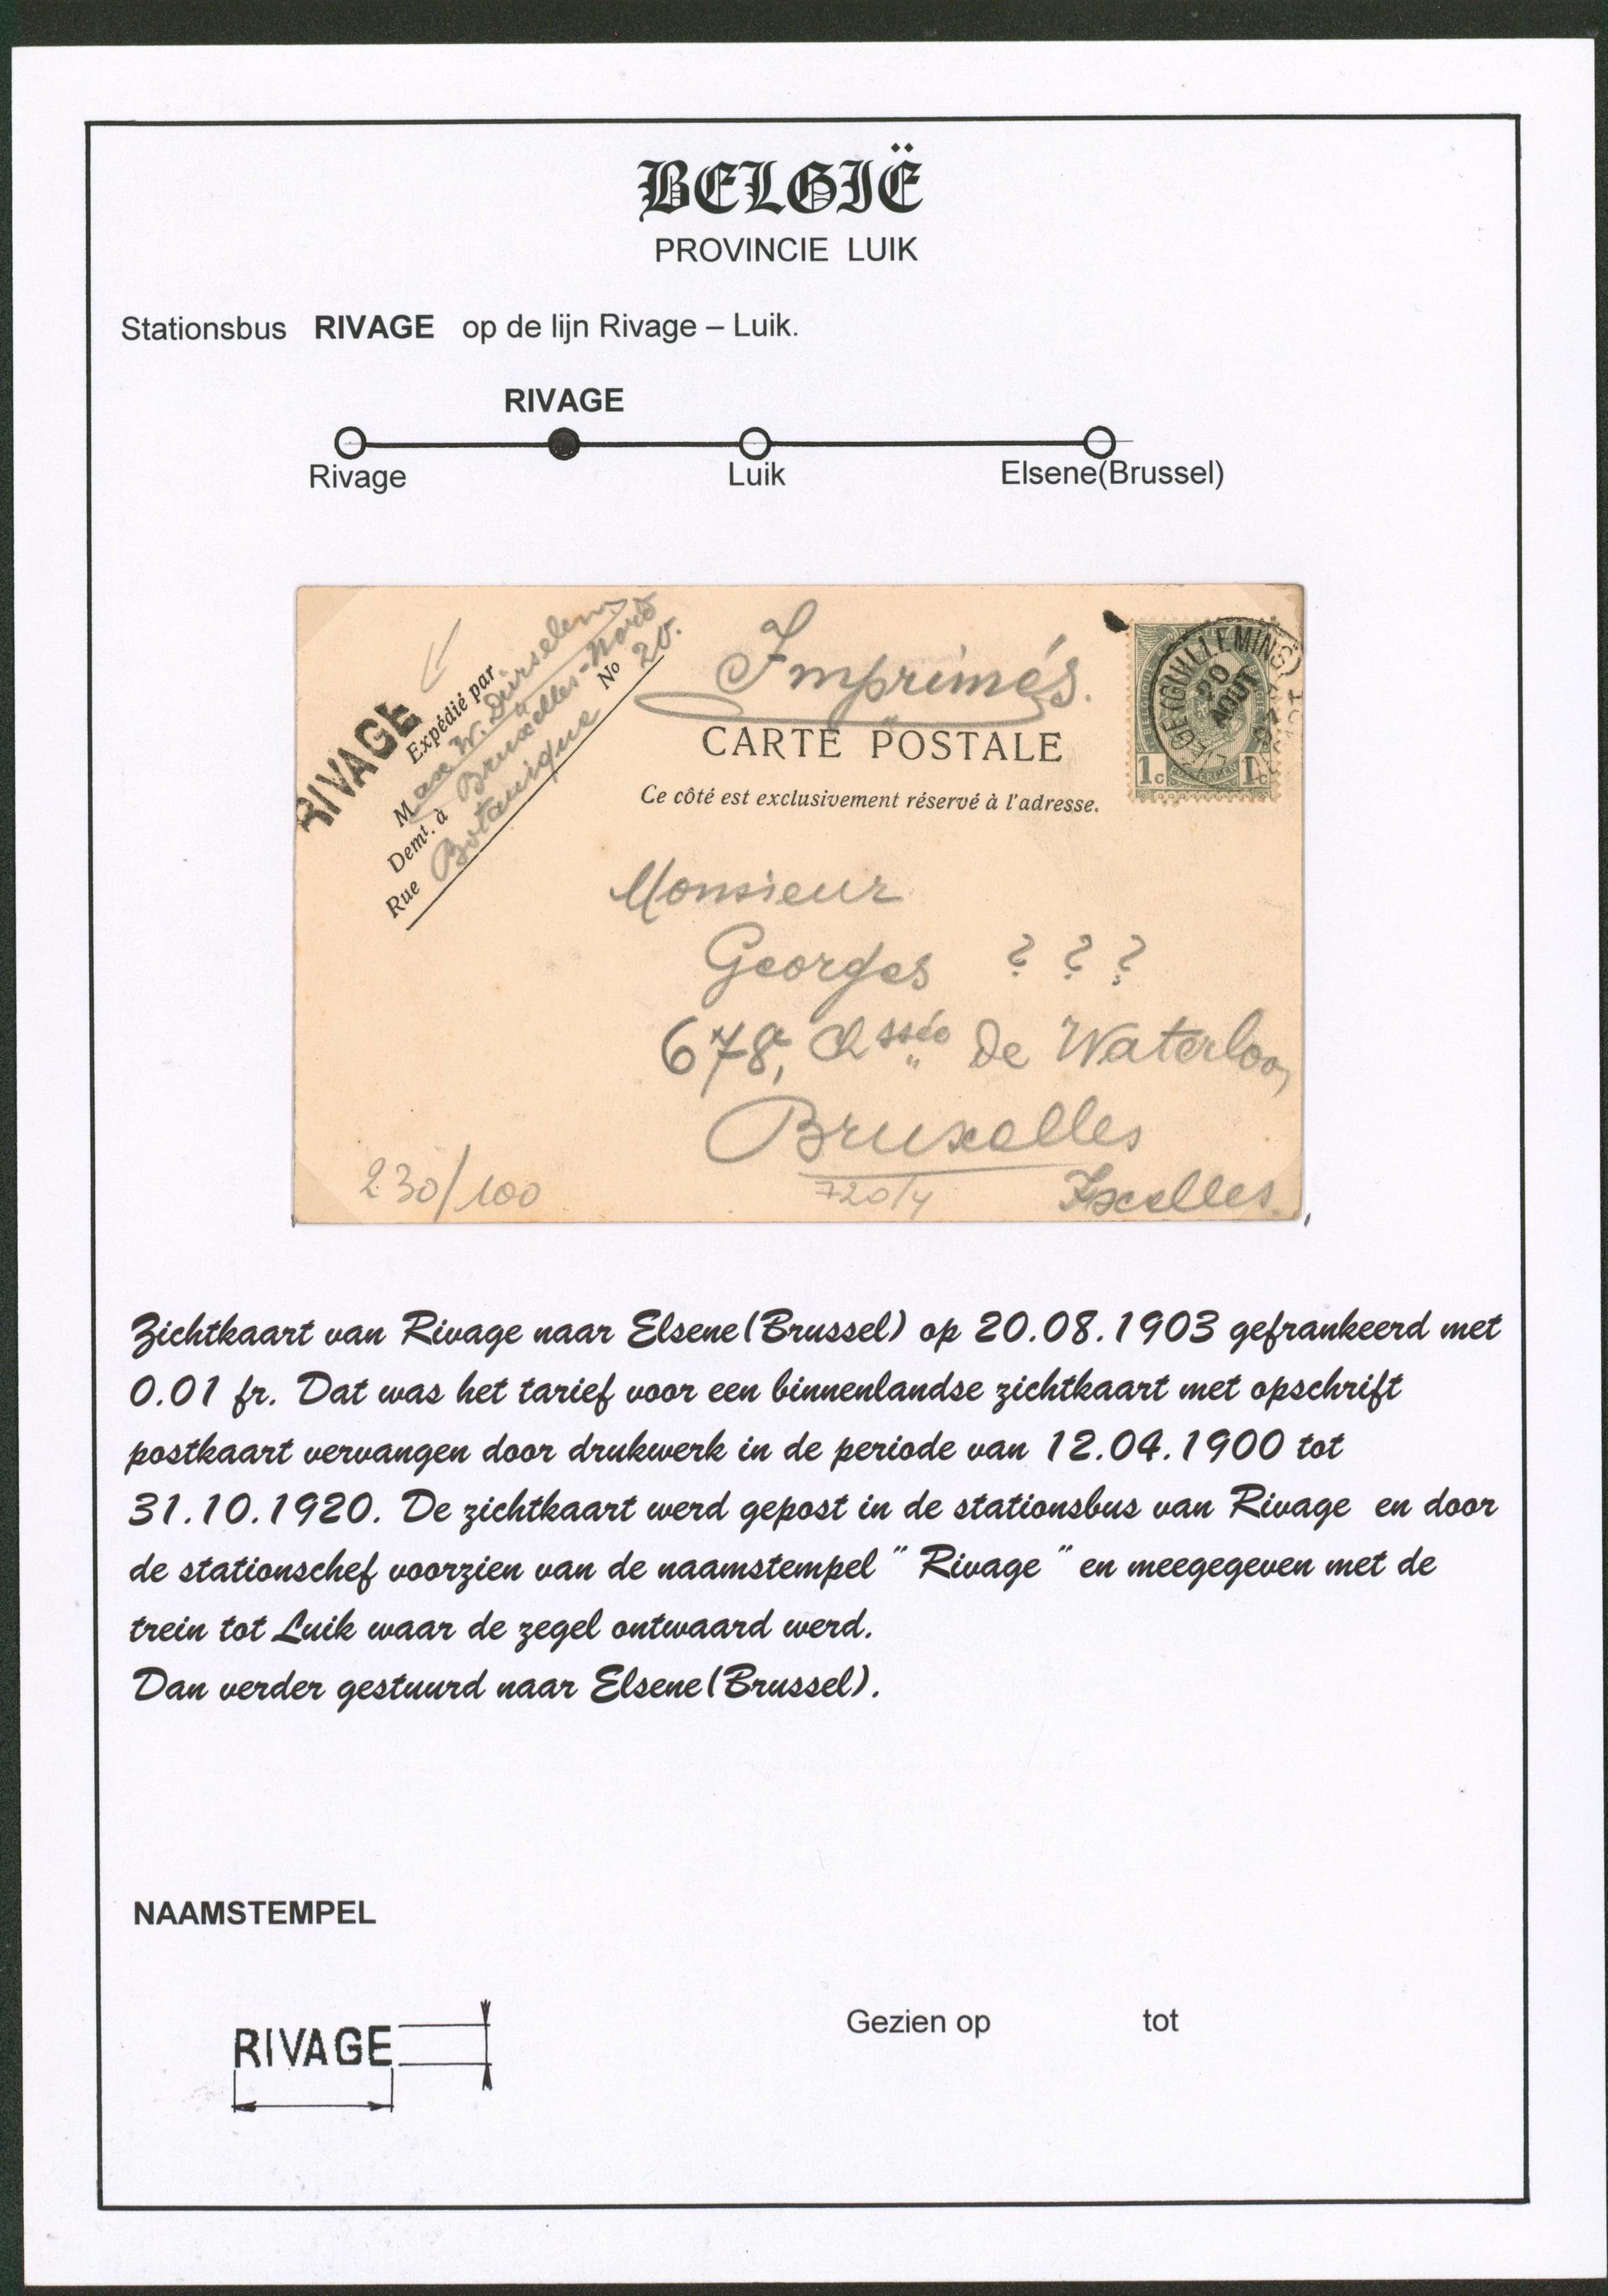 BELGIË
PROVINCIE LUIK
Stationsbus RIVAGE op de lijn Rivage – Luik.
RIVAGE
Rivage Luik Elsene(Brussel)
RIVAGE
Expédié par
Max W. Dürselen
Demt. à Bruxelles-Nord
Rue Botanique No 20.
Imprimés.
CARTE POSTALE
Ce côté est exclusivement réservé à l'adresse.
(GUILLEMINS)
20
AOUT
1c 1c
Monsieur
Georges ? ? ?
678a, Chssée De Waterloo,
Bruxelles
Ixelles.
230/100
720/4
Zichtkaart van Rivage naar Elsene(Brussel) op 20.08.1903 gefrankeerd met
0.01 fr. Dat was het tarief voor een binnenlandse zichtkaart met opschrift
postkaart vervangen door drukwerk in de periode van 12.04.1900 tot
31.10.1920. De zichtkaart werd gepost in de stationsbus van Rivage en door
de stationschef voorzien van de naamstempel " Rivage " en meegegeven met de
trein tot Luik waar de zegel ontwaard werd.
Dan verder gestuurd naar Elsene(Brussel).
NAAMSTEMPEL
RIVAGE
Gezien op tot